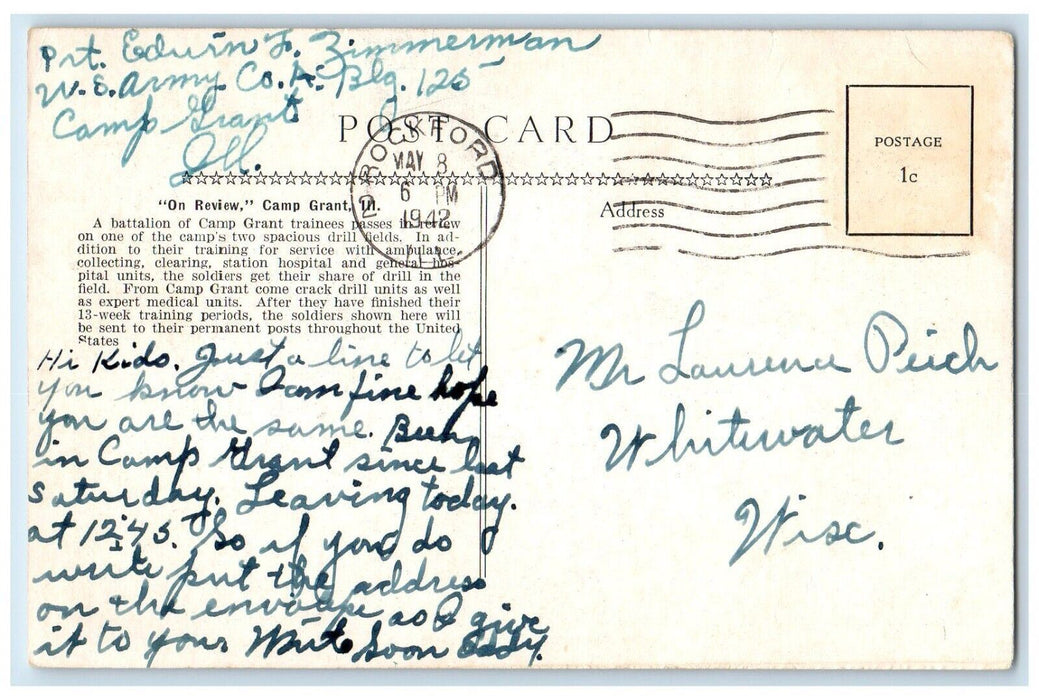 Pvt. Edwin F. Zimmerman
U.S. Army Co. A. Blg. 125
Camp Grant
Ill.
POST CARD
ROCKFORD
MAY 8
6 PM
1942
ILL.
POSTAGE
1c
"On Review," Camp Grant, Ill.
A battalion of Camp Grant trainees passes in review
on one of the camp's two spacious drill fields. In ad-
dition to their training for service with ambulance,
collecting, clearing, station hospital and general hos-
pital units, the soldiers get their share of drill in the
field. From Camp Grant come crack drill units as well
as expert medical units. After they have finished their
13-week training periods, the soldiers shown here will
be sent to their permanent posts throughout the United
States
Address
Hi Kids. Just a line to let
you know I am fine hope
you are the same. Been
in Camp Grant since last
Saturday. Leaving today.
at 12:45. So if you do
write put the address
on the envolope as I give
it to you. Write Soon Eddy.
Mr Laurence Peich
Whitewater
Wisc.